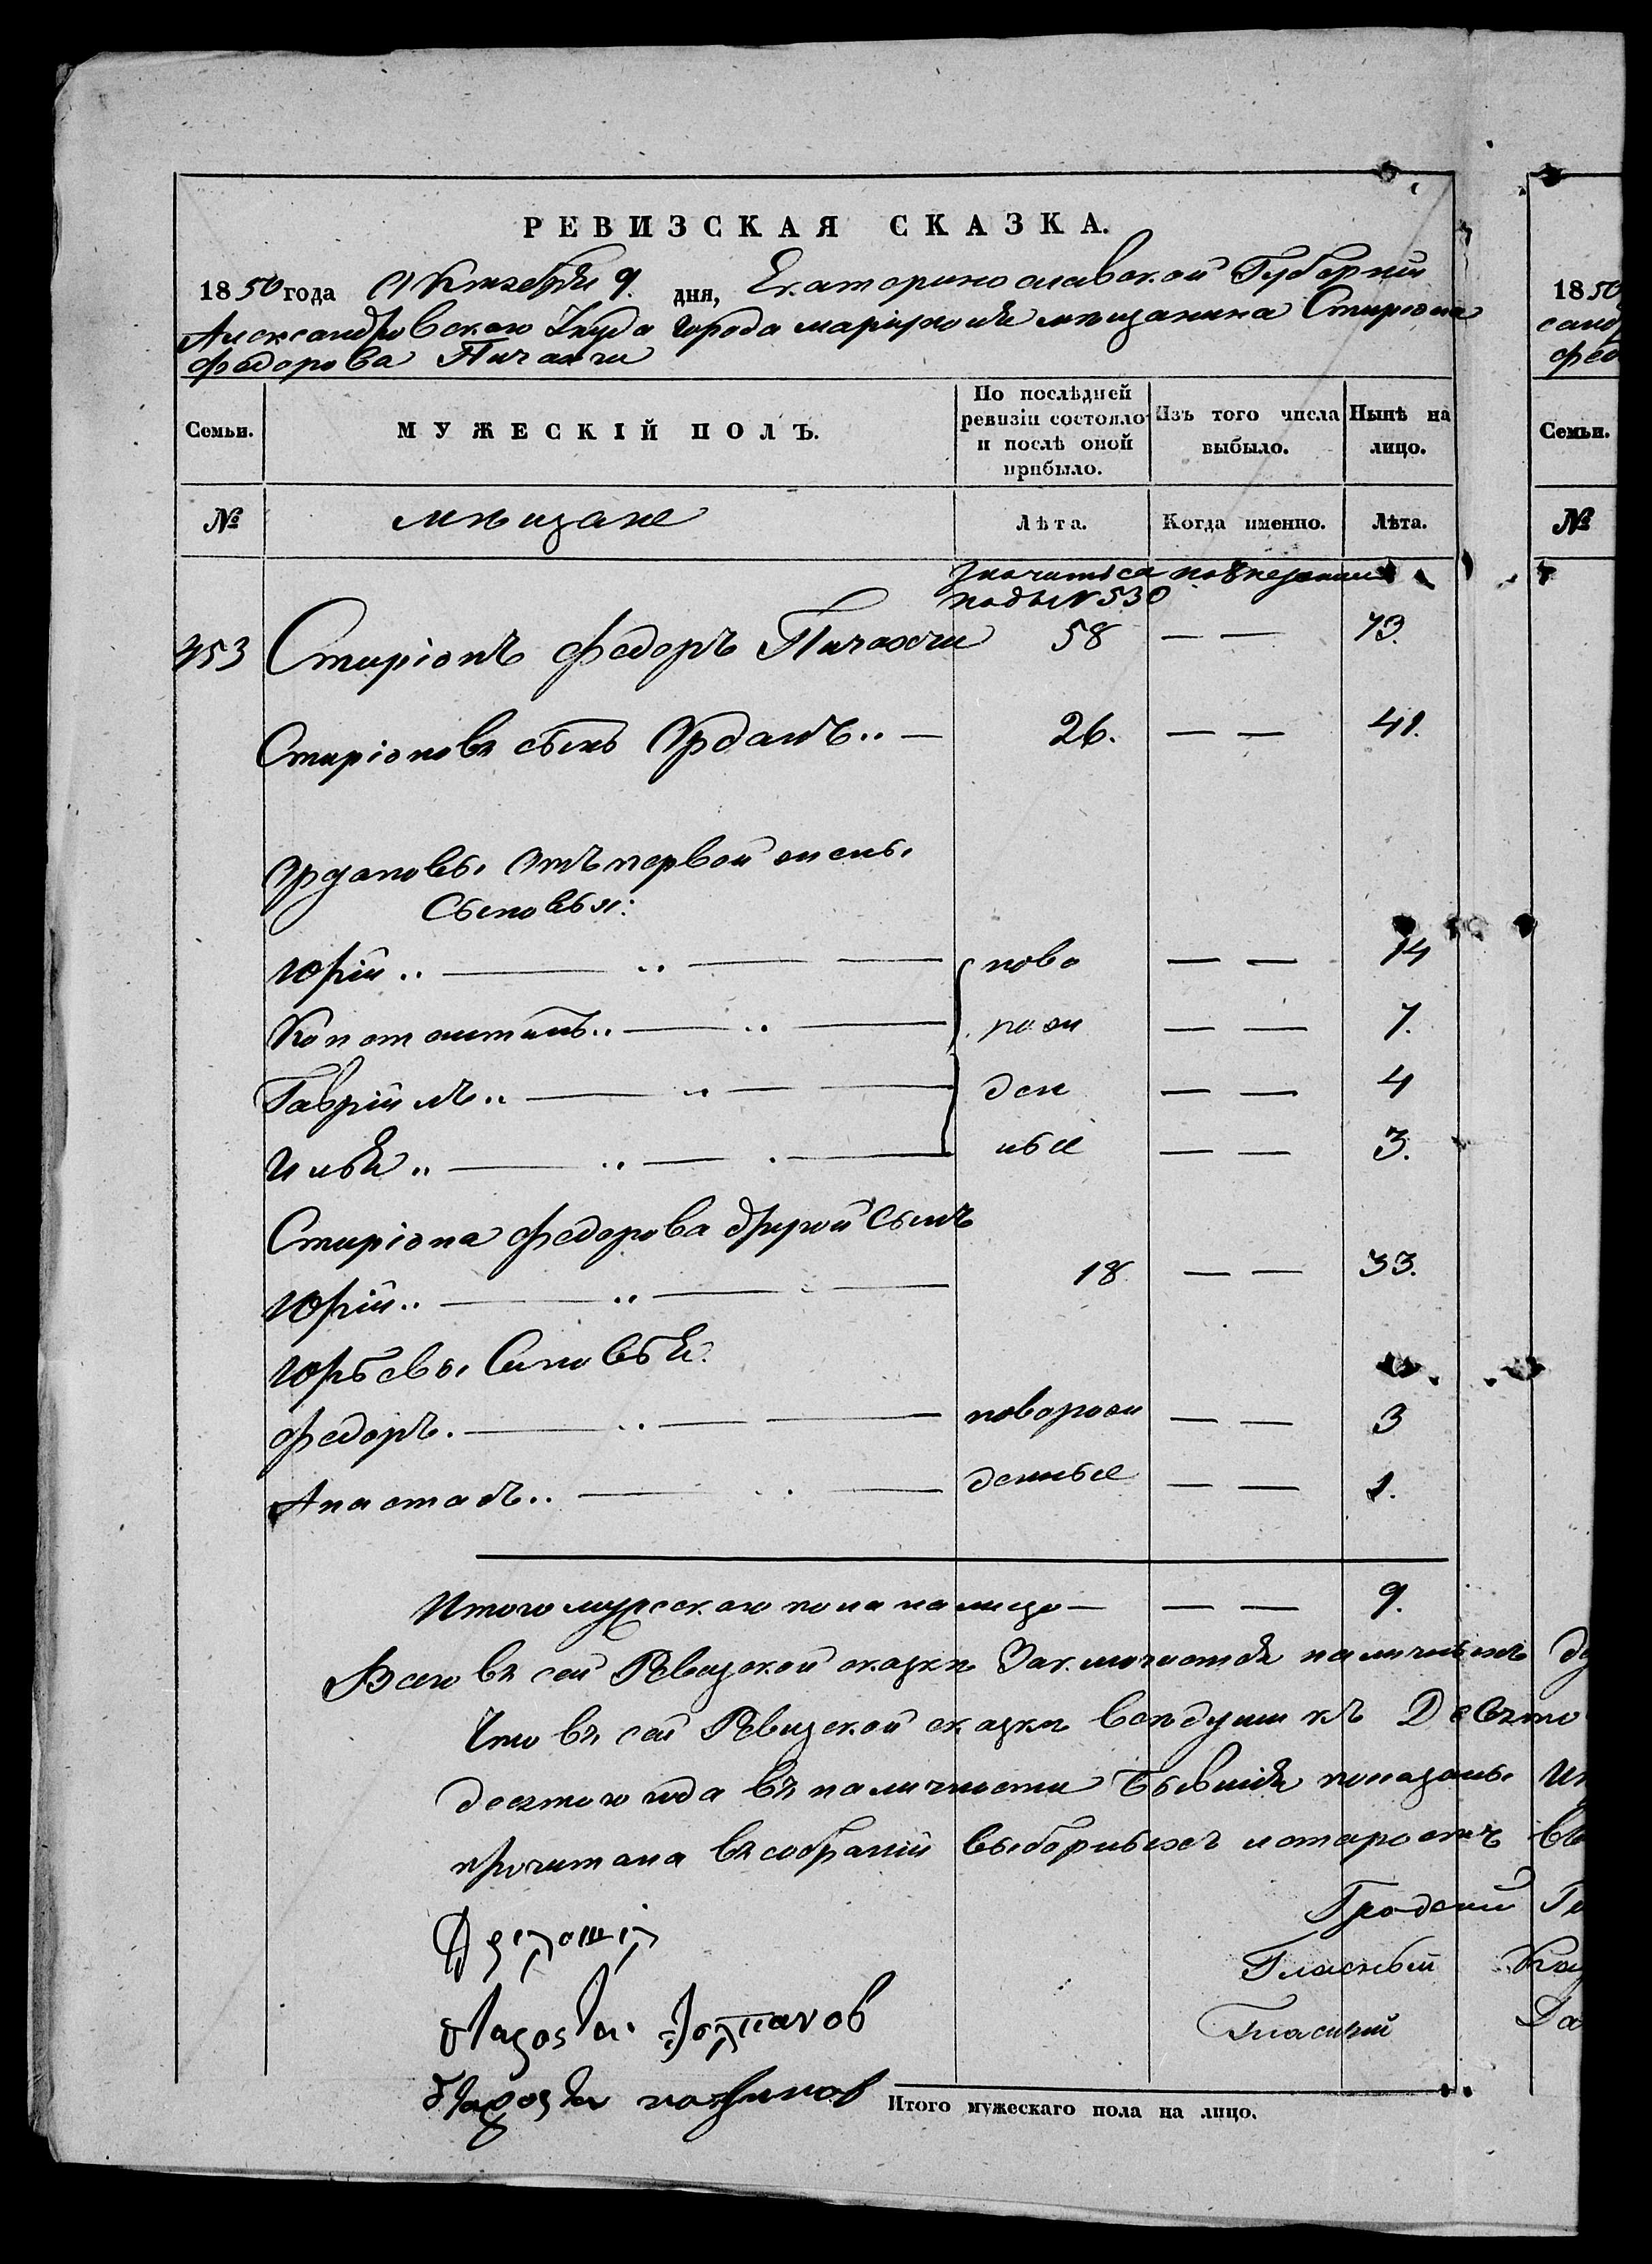 РЕВИЗСКАЯ СКАЗКА.
1850 года Октября 9. дня, Екатеринославской Губерніи
Александровскаго Уезда города маріуполя мѣщанина Стиріона
Федорова Пичахчи
Семьи.
МУЖЕСКІЙ ПОЛЪ.
По послѣдней ревизіи состояло и послѣ оной прибыло.
Изъ того числа выбыло.
Нынѣ на лицо.
№
мѣщане
Лѣта.
Когда именно.
Лѣта.
значится
подъ N 530
453 Стиріонъ Федоръ Пичахчи 58 — — 73.
Стиріоновъ сынъ Юрданъ.. — 26. — — 41.
Юрдановы отъ первой жены
Сыновья:
Юрій.. — .. — — ново — — 14
Константинъ.. — .. — рож — — 7.
Гавріилъ.. — .. — — ден — — 4
Илья.. — .. — . — ные — — 3.
Стиріона Федорова другой сынъ
Юрій.. — .. — — 18 — — 33.
Юрьевы Синовья.
Федоръ. — .. — — поворож — — 3
Анастасъ.. — . . — денные — — 1.
Итого мужескаго пола налицо — — — 9.
Всего въ сей Ревизской сказкѣ Заключается наличныхъ
Что въ сей Ревизской сказкѣ всѣ души къ Девято
десятого года въ наличности бывшія показаны
прочитана въ собраніи выборныхъ и старостъ
Градскій
Гласный
Гласный
Итого мужескаго пола на лицо.
1850
Семьи.
№